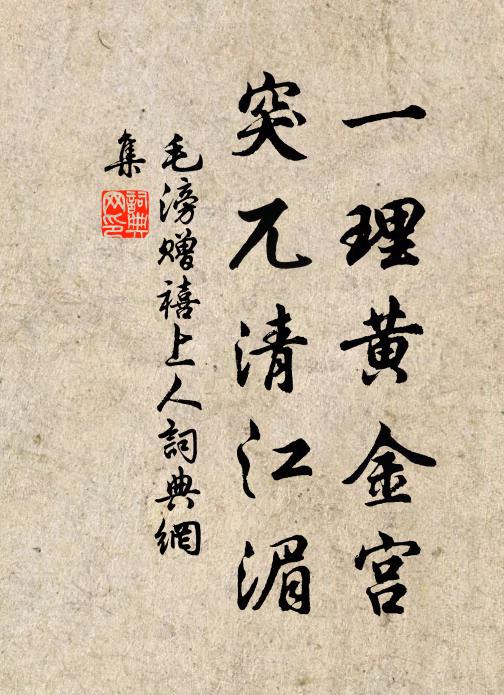 一理黄金宫
突兀清江湄
毛滂赠禧上人詞典網
集
詞典
网印